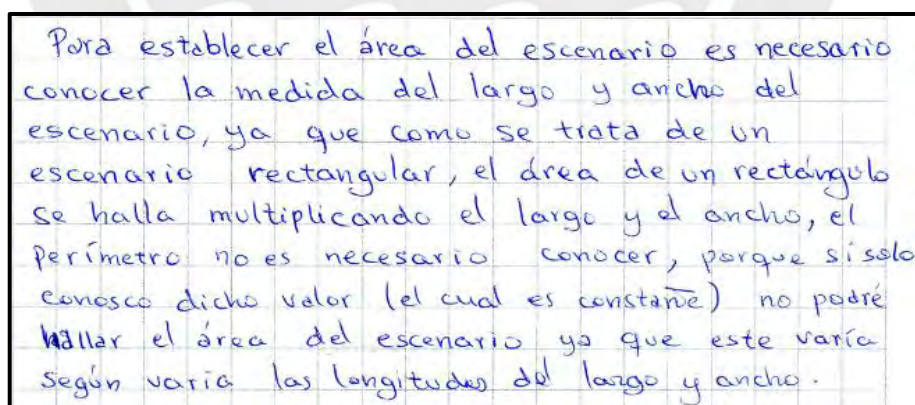 Para establecer el área del escenario es necesario
conocer la medida del largo y ancho del
escenario, ya que como se trata de un
escenario rectangular, el área de un rectángulo
se halla multiplicando el largo y el ancho, el
perímetro no es necesario conocer, porque si solo
conosco dicho valor (el cual es constante) no podré
hallar el área del escenario ya que este varía
según varia las longitudes del largo y ancho.